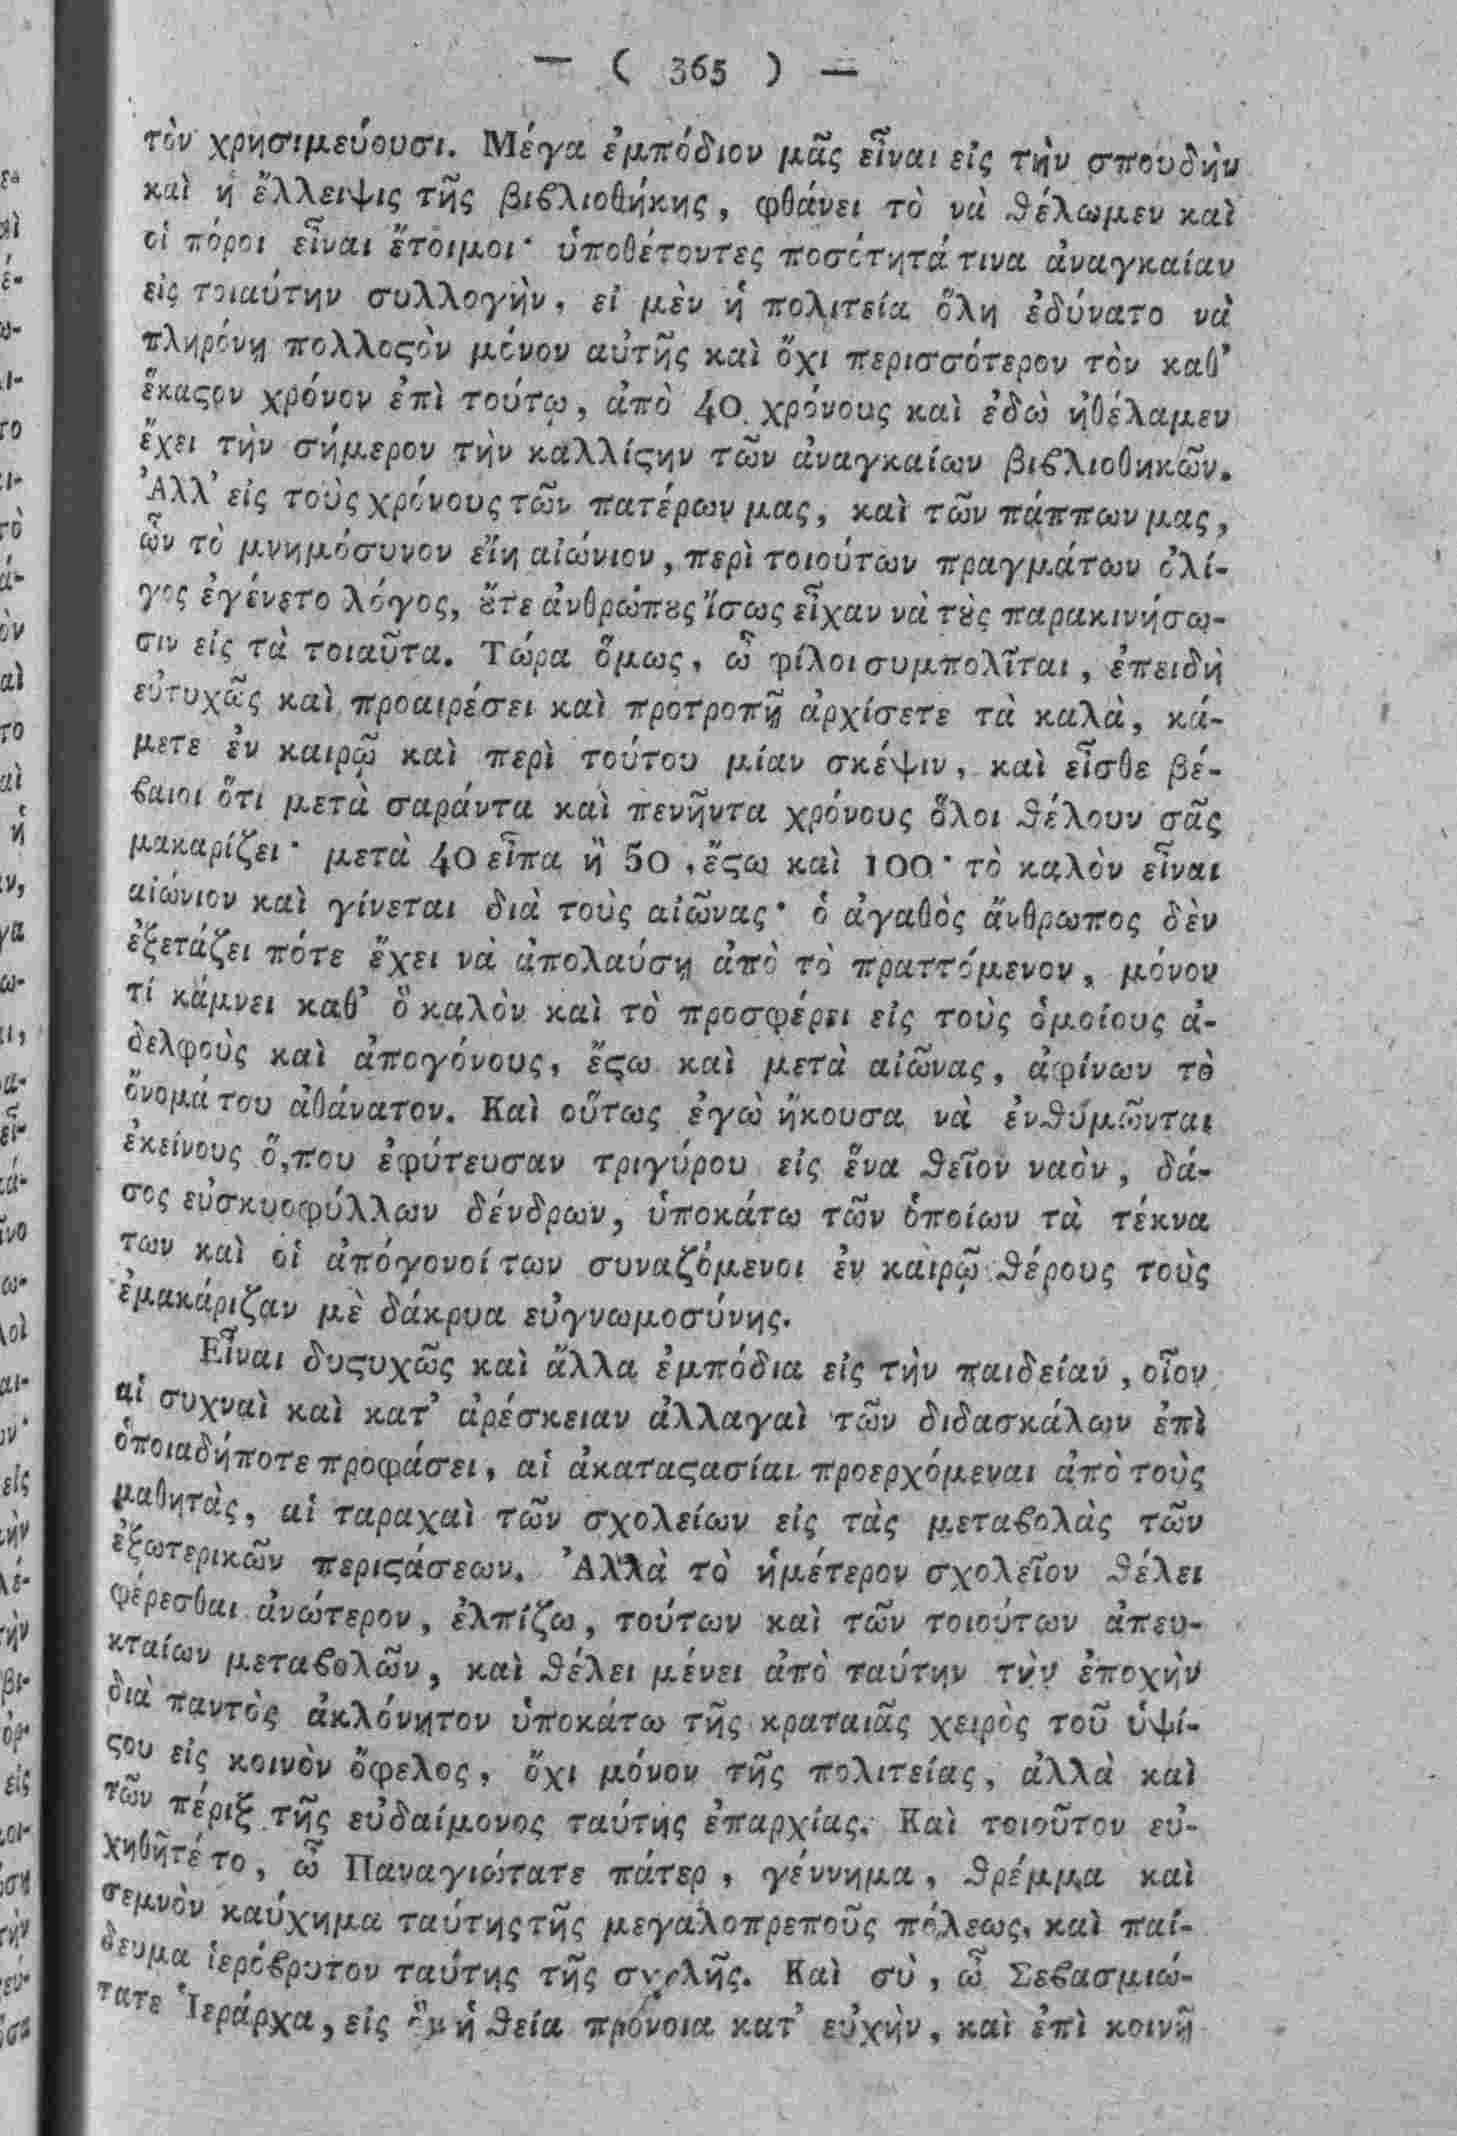 — ( 365 ) —
τὸν χρησιμεύουσι. Μέγα ἐμπόδιον μᾶς εἶναι εἰς τὴν σπουδὴν
καὶ ἡ ἔλλειψις τῆς βιϐλιοθήκης, φθάνει τὸ νὰ θέλωμεν καὶ
οἱ πόροι εἶναι ἕτοιμοι· ὑποθέτοντες ποσότητά τινα ἀναγκαίαν
εἰς τοιαύτην συλλογὴν, εἰ μὲν ἡ πολιτεία ὅλη ἐδύνατο νὰ
πληρόνῃ πολλοϛὸν μόνον αὐτῆς καὶ ὄχι περισσότερον τὸν καθ’
ἕκαϛον χρόνον ἐπὶ τούτῳ, ἀπὸ 40 χρόνους καὶ ἐδὼ ἠθέλαμεν
ἔχει τὴν σήμερον τὴν καλλίϛην τῶν ἀναγκαίων βιϐλιοθηκῶν.
Ἀλλ’ εἰς τοὺς χρόνους τῶν πατέρων μας, καὶ τῶν πάππων μας,
ὧν τὸ μνημόσυνον εἴη αἰώνιον, περὶ τοιούτων πραγμάτων ὀλί-
γος ἐγένετο λόγος, ȣ̓́τε ἀνθρώπȣς ἴσως εἶχαν νὰ τȣ̀ς παρακινήσω-
σιν εἰς τὰ τοιαῦτα. Τώρα ὅμως, ὦ φίλοι συμπολῖται, ἐπειδὴ
εὐτυχῶς καὶ προαιρέσει καὶ προτροπῇ ἀρχίσετε τὰ καλὰ, κά-
μετε ἐν καιρῷ καὶ περὶ τούτου μίαν σκέψιν, καὶ εἶσθε βέ-
ϐαιοι ὅτι μετὰ σαράντα καὶ πενῆντα χρόνους ὅλοι θέλουν σᾶς
μακαρίζει· μετὰ 40 εἶπα ἢ 50, ἔϛω καὶ 100· τὸ καλὸν εἶναι
αἰώνιον καὶ γίνεται διὰ τοὺς αἰῶνας· ὁ ἀγαθὸς ἄνθρωπος δὲν
ἐξετάζει πότε ἔχει νὰ ἀπολαύσῃ ἀπὸ τὸ πραττόμενον, μόνον
τί κάμνει καθ’ ὃ καλὸν καὶ τὸ προσφέρει εἰς τοὺς ὁμοίους ἀ-
δελφοὺς καὶ ἀπογόνους, ἔϛω καὶ μετὰ αἰῶνας, ἀφίνων τὸ
ὄνομά του ἀθάνατον. Καὶ οὕτως ἐγὼ ἤκουσα νὰ ἐνθυμῶνται
ἐκείνους ὅ,που ἐφύτευσαν τριγύρου εἰς ἕνα θεῖον ναὸν, δά-
σος εὐσκυοφύλλων δένδρων, ὑποκάτω τῶν ὁποίων τὰ τέκνα
των καὶ οἱ ἀπόγονοί των συναζόμενοι ἐν καιρῷ θέρους τοὺς
ἐμακάριζαν μὲ δάκρυα εὐγνωμοσύνης.
Εἶναι δυϛυχῶς καὶ ἄλλα ἐμπόδια εἰς τὴν παιδείαν, οἷον
αἱ συχναὶ καὶ κατ’ ἀρέσκειαν ἀλλαγαὶ τῶν διδασκάλων ἐπὶ
ὁποιαδήποτε προφάσει, αἱ ἀκαταϛασίαι προερχόμεναι ἀπὸ τοὺς
μαθητὰς, αἱ ταραχαὶ τῶν σχολείων εἰς τὰς μεταϐολὰς τῶν
ἐξωτερικῶν περιϛάσεων. Ἀλλὰ τὸ ἡμέτερον σχολεῖον θέλει
φέρεσθαι ἀνώτερον, ἐλπίζω, τούτων καὶ τῶν τοιούτων ἀπευ-
κταίων μεταϐολῶν, καὶ θέλει μένει ἀπὸ ταύτην τὴν ἐποχὴν
διὰ παντὸς ἀκλόνητον ὑποκάτω τῆς κραταιᾶς χειρὸς τοῦ ὑψί-
ϛου εἰς κοινὸν ὄφελος, ὄχι μόνον τῆς πολιτείας, ἀλλὰ καὶ
τῶν πέριξ τῆς εὐδαίμονος ταύτης ἐπαρχίας. Καὶ τοιοῦτον εὐ-
χηθῆτέ το, ὦ Παναγιώτατε πάτερ, γέννημα, θρέμμα καὶ
σεμνὸν καύχημα ταύτης τῆς μεγαλοπρεποῦς πόλεως, καὶ παί-
δευμα ἱερόϐρυτον ταύτης τῆς σχολῆς. Καὶ σὺ, ὦ Σεϐασμιώ-
τατε Ἱεράρχα, εἰς ὃν ἡ θεία πρόνοια κατ’ εὐχὴν, καὶ ἐπὶ κοινῇ